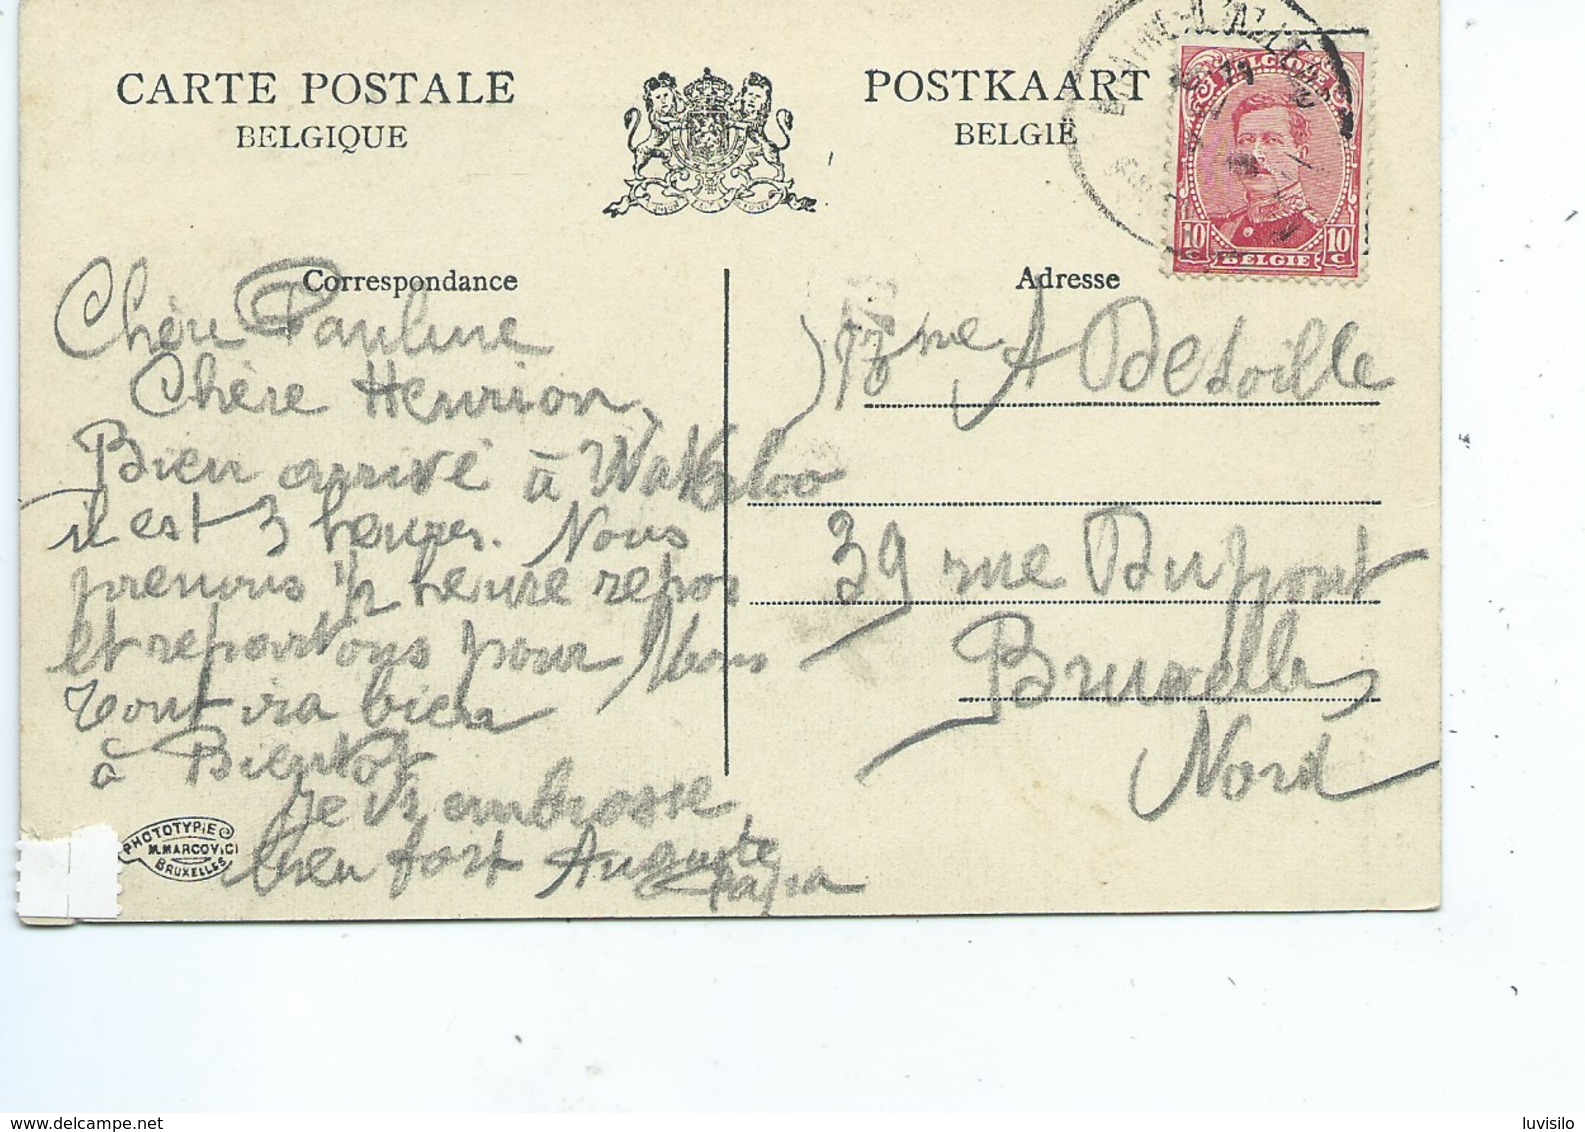 CARTE POSTALE
BELGIQUE
POSTKAART
BELGIË
BELGIQUE
10 c BELGIE 10 c
Correspondance
Adresse
Chère Pauline
Chère Henrion,
Bien arrivé à Waterloo
il est 3 heures. Nous
prenons 1/2 heure repos
et repartons pour
Tout ira bien
à Bientot
Je Vs embrasse
bien fort Auguste
papa
Mme A Detoille
39 rue Dupont
Bruxelles
Nord
PHOTOTYPIE
M. MARCOVICI
BRUXELLES
luvisilo